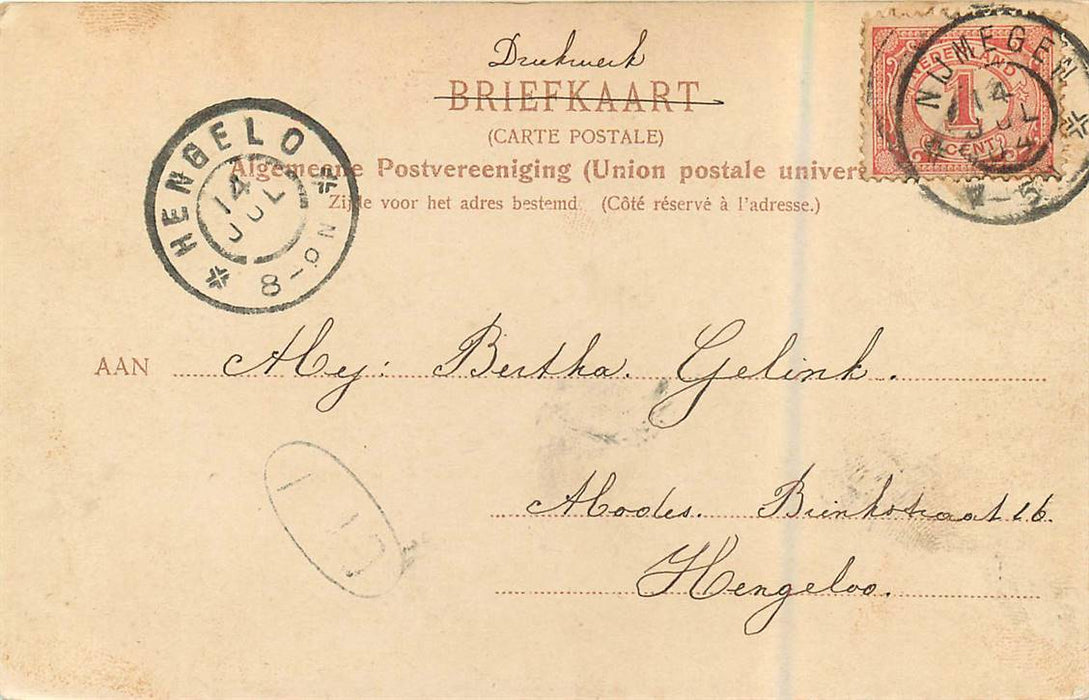 Drukwerk
BRIEFKAART
(CARTE POSTALE)
Algemeene Postvereeniging (Union postale univer
Zijde voor het adres bestemd. (Côté réservé à l'adresse.)
NEDERLAND
1
CENT
NIJMEGEN
14
JUL
04
4-5
HENGELO
14
JUL
8-9N
AAN Mej: Bertha. Gelink.
Modes. Brinkstraat 16.
Hengeloo.